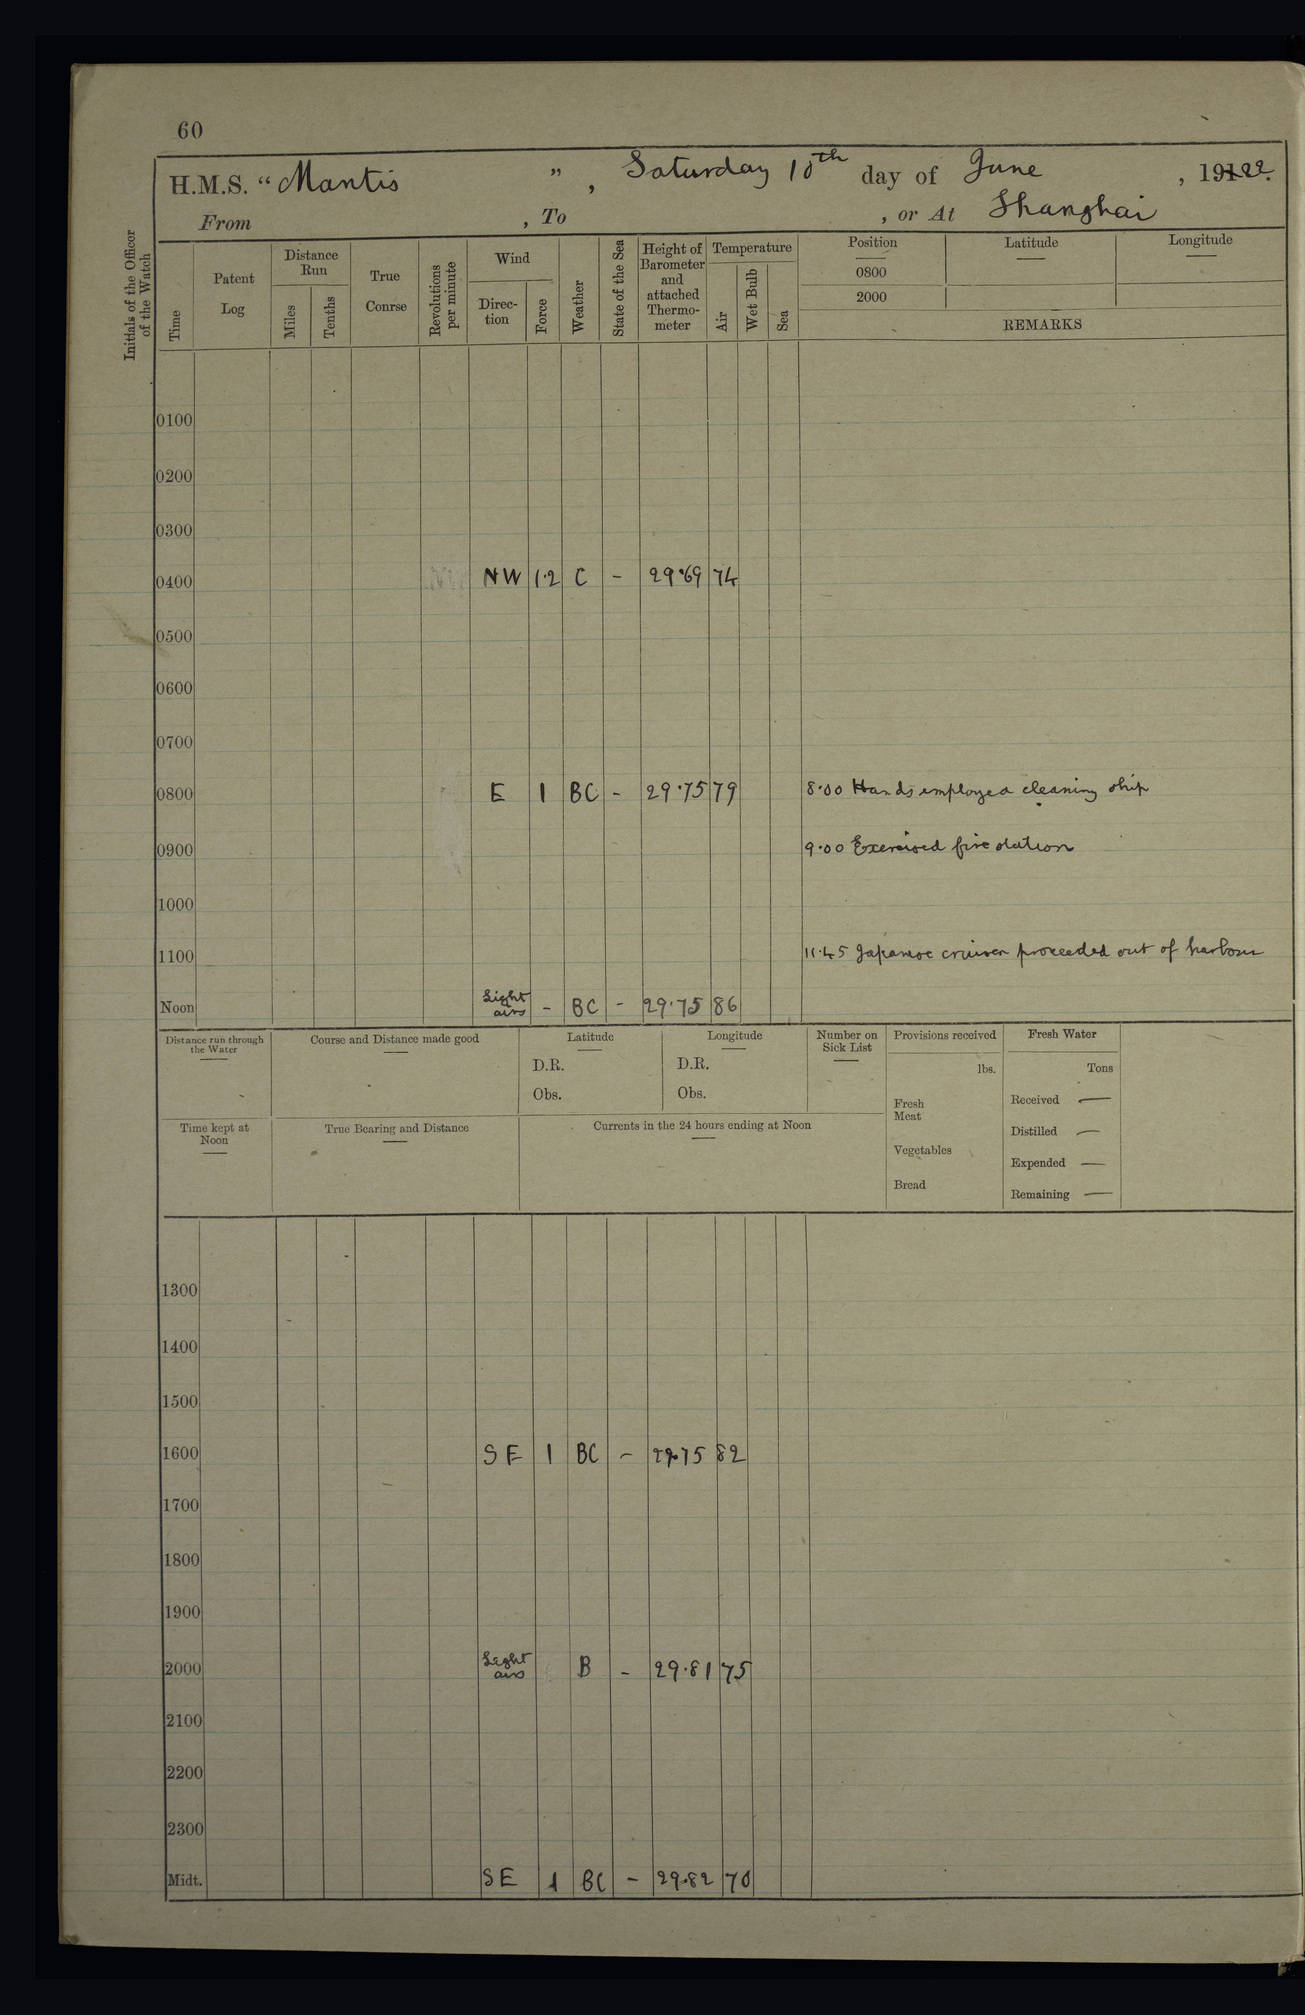 60
H.M.S. "Mantis", Saturday 10th day of June, 1922.
From , To , or At Shanghai
Initials of the Officer of the Watch
Time
Patent Log
Distance Run
Miles
Tenths
True Conrse
Revolutions per minute
Wind
Direc-tion
Force
Weather
State of the Sea
Height of Barometer and attached Thermo-meter
Temperature
Air
Wet Bulb
Sea
Position Latitude Longitude
0800
2000
REMARKS
0100
0200
0300
0400 NW 1.2 C - 29.69 74
0500
0600
0700
0800 E 1 BC - 29.75 79 8.00 Hands employed cleaning ship
0900 9.00 Exercised fire station
1000
1100 11.45 Japanese cruiser proceeded out of harbour
Noon Light airs - BC - 29.75 86
Distance run through the Water
Course and Distance made good
Latitude
D.R.
Obs.
Longitude
D.R.
Obs.
Number on Sick List
Provisions received
lbs.
Fresh Meat
Vegetables
Bread
Fresh Water
Tons
Received —
Distilled —
Expended —
Remaining —
Time kept at Noon
True Bearing and Distance
Currents in the 24 hours ending at Noon
1300
1400
1500
1600 SE 1 BC - 29.75 82
1700
1800
1900
2000 Light airs B - 29.81 75
2100
2200
2300
Midt. SE 1 BC - 29.82 70